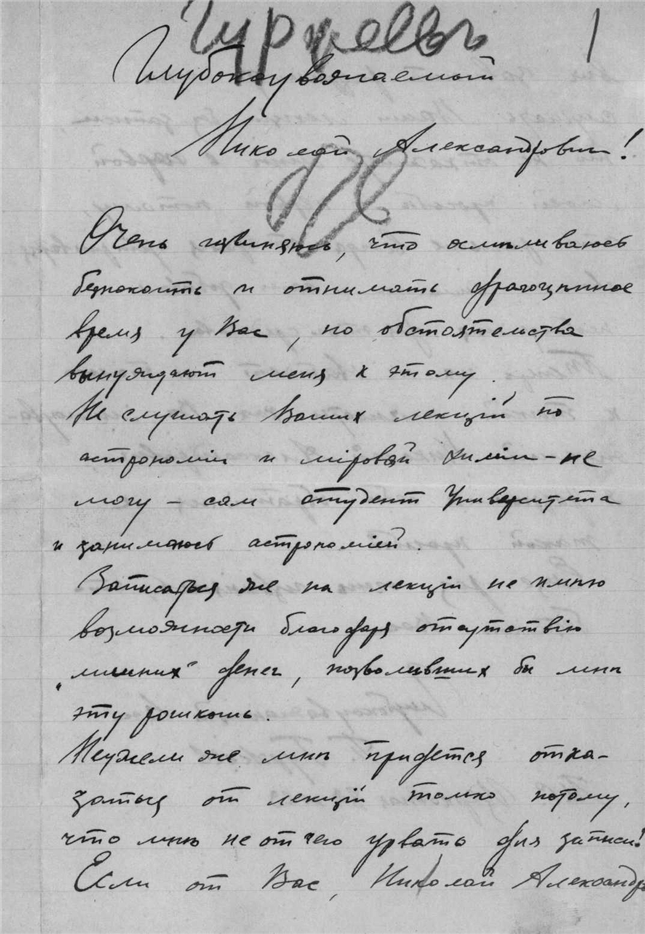 Гурьевъ
1
Глубокоуважаемый
Николай Александрович!
Очень извиняюсь, что осмѣливаюсь
безпокоить и отнимать драгоцѣнное
время у Вас, но обстоятельства
вынуждают меня к этому.
Не слушать Ваших лекцій по
астрономіи и міровѣд. химіи – не
могу – сам студент Университета
и занимаюсь астрономіей.
Записаться же на лекціи не имѣю
возможности благодаря отсутствію
„лишних" денег, позволивших бы мнѣ
эту роскошь.
Неужели же мнѣ придется отка-
заться от лекцій только потому,
что мнѣ не от чего урвать для записи!
Если от Вас, Николай Александр